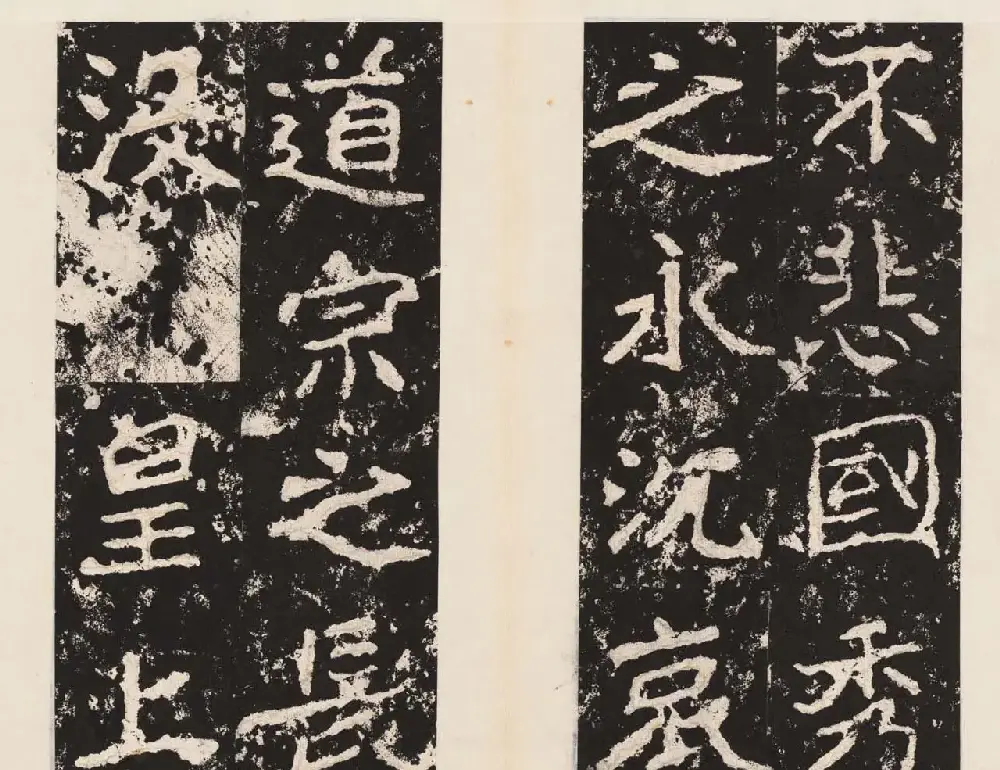 不悲國秀
之永沉哀
道宗之長
沒皇上